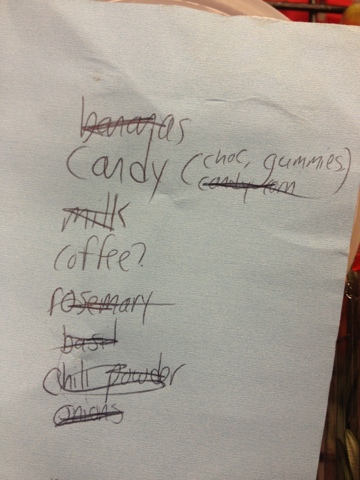 bananas
Candy (choc, gummies)
candy corn
milk
coffee?
rosemary
basil
chili powder
onions